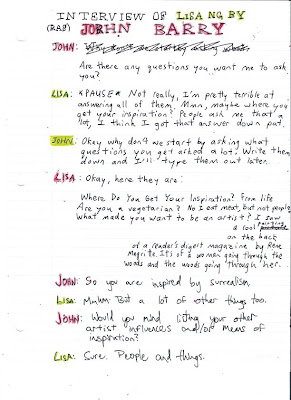 INTERVIEW OF LISA NG BY
(RAB) JOHN BARRY
JOHN:
Are there any questions you want me to ask
you?
LISA: *PAUSE* Not really, I'm pretty terrible at
answering all of them. Mmm, maybe where you
get your inspiration? People ask me that a
lot, I think I got that answer down pat.
JOHN: Okay why don't we start by asking what
questions you get asked a lot? Write them
down and I'll type them out later.
LISA: Okay, here they are:
Where Do You Get Your Inspiration? From life
Are you a vegetarian? No I eat meat, but not people
What made you want to be an artist? I saw
a cool painting
on the back
of a reader's digest magazine by Rene
Magrite. It's of a woman going through the
woods and the woods going through her.
JOHN: So you are inspired by surrealism.
LISA: Mmhm. But a lot of other things too.
JOHN: Would you mind listing your other
artist influences and/or means of
inspiration?
LISA: Sure. People and things.